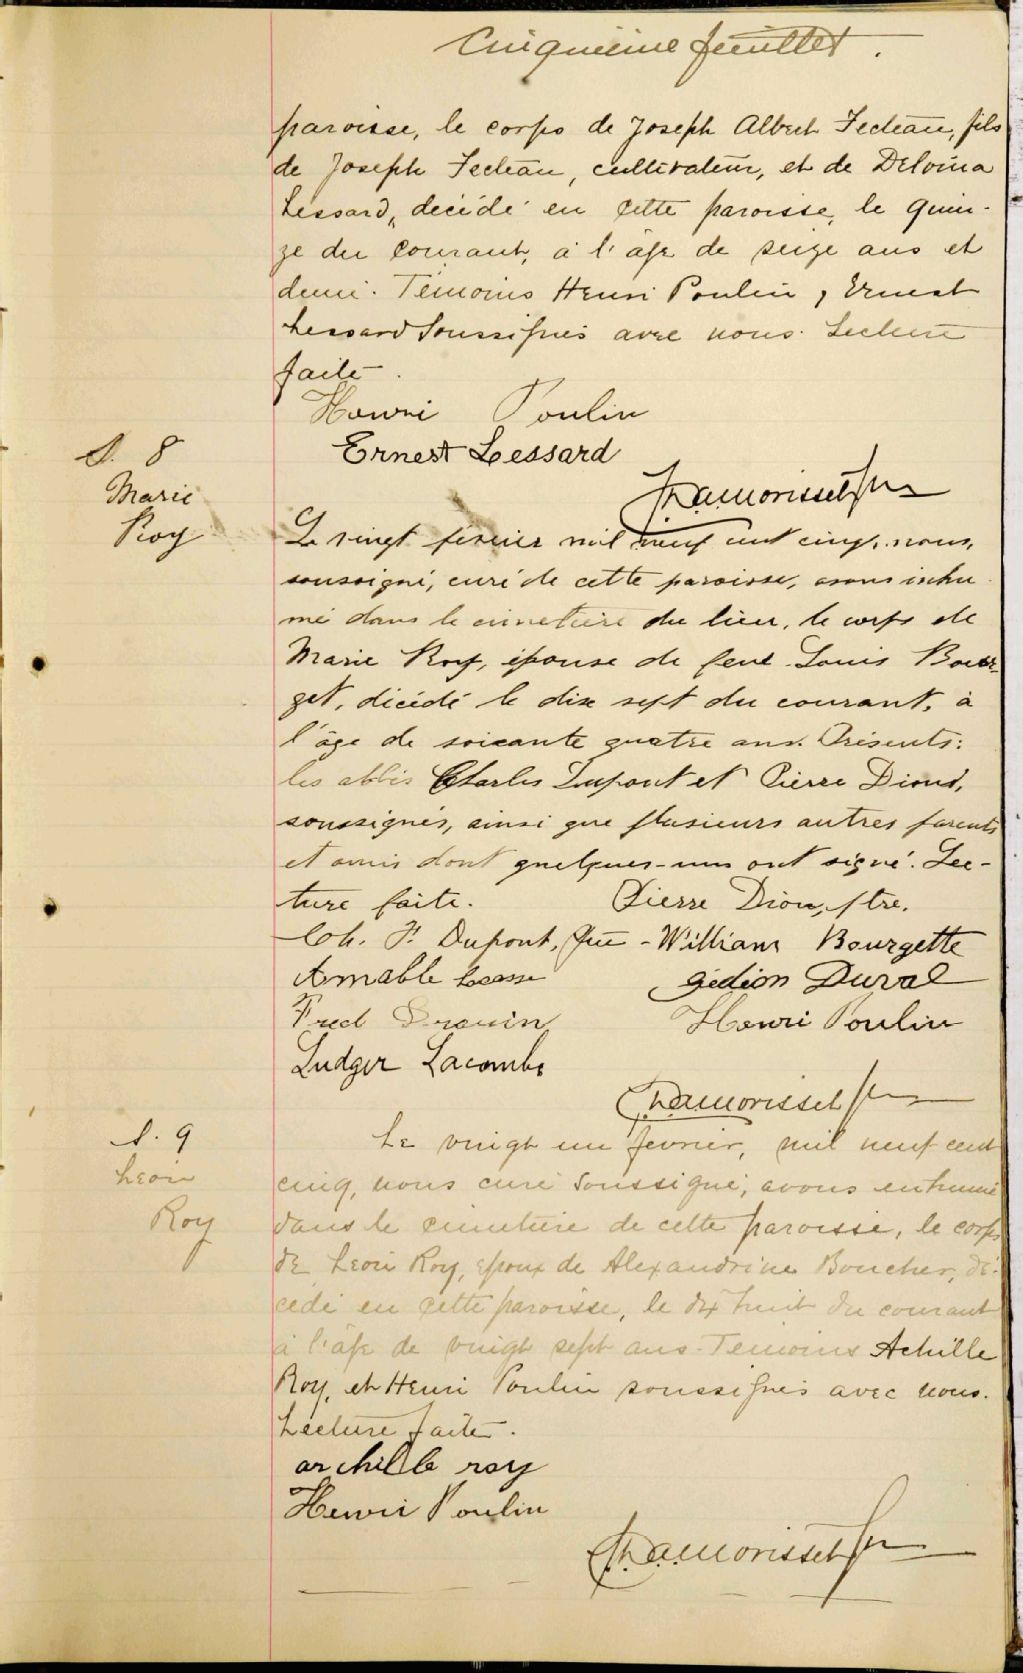 Cinquième feuillet.
paroisse, le corps de Joseph Albert Fecteau, fils
de Joseph Fecteau, cultivateur, et de Delvina
Lessard, décédé en cette paroisse, le quin-
ze du courant, à l'âge de seize ans et
demi. Témoins Henri Poulin, Ernest
Lessard soussignés avec nous. Lecture
faite.
Henri Poulin
Ernest Lessard
S. 8
Marie
Roy
Le vingt février mil neuf cent cinq, nous,
soussigné, curé de cette paroisse, avons inhu-
mé dans le cimetière du lieu, le corps de
Marie Roy, épouse de feu Louis Bour-
get, décédé le dix sept du courant, à
l'âge de soixante quatre ans. Présents:
les abbés Charles Dupont et Pierre Dion,
soussignés, ainsi que plusieurs autres parents
et amis dont quelques-uns ont signé. Lec-
ture faite. Pierre Dion, ptre.
Ch. F. Dupont, ptre - William Bourgette
Amable Gédion Duval
Fred Drouin Henri Poulin
Ludger Lacombe
Morisset ptre
S. 9
Léon
Roy
Le vingt un fevrier, mil neuf cent
cinq, nous curé soussigné, avons enhumé
dans le cimetière de cette paroisse, le corps
de Léon Roy, epoux de Alexandrine Boucher, dé-
cédé en cette paroisse, le dix huit du courant
à l'âge de vingt sept ans. Temoins Achille
Roy, et Henri Poulin soussignés avec nous.
Lecture faite.
archille roy
Henri Poulin